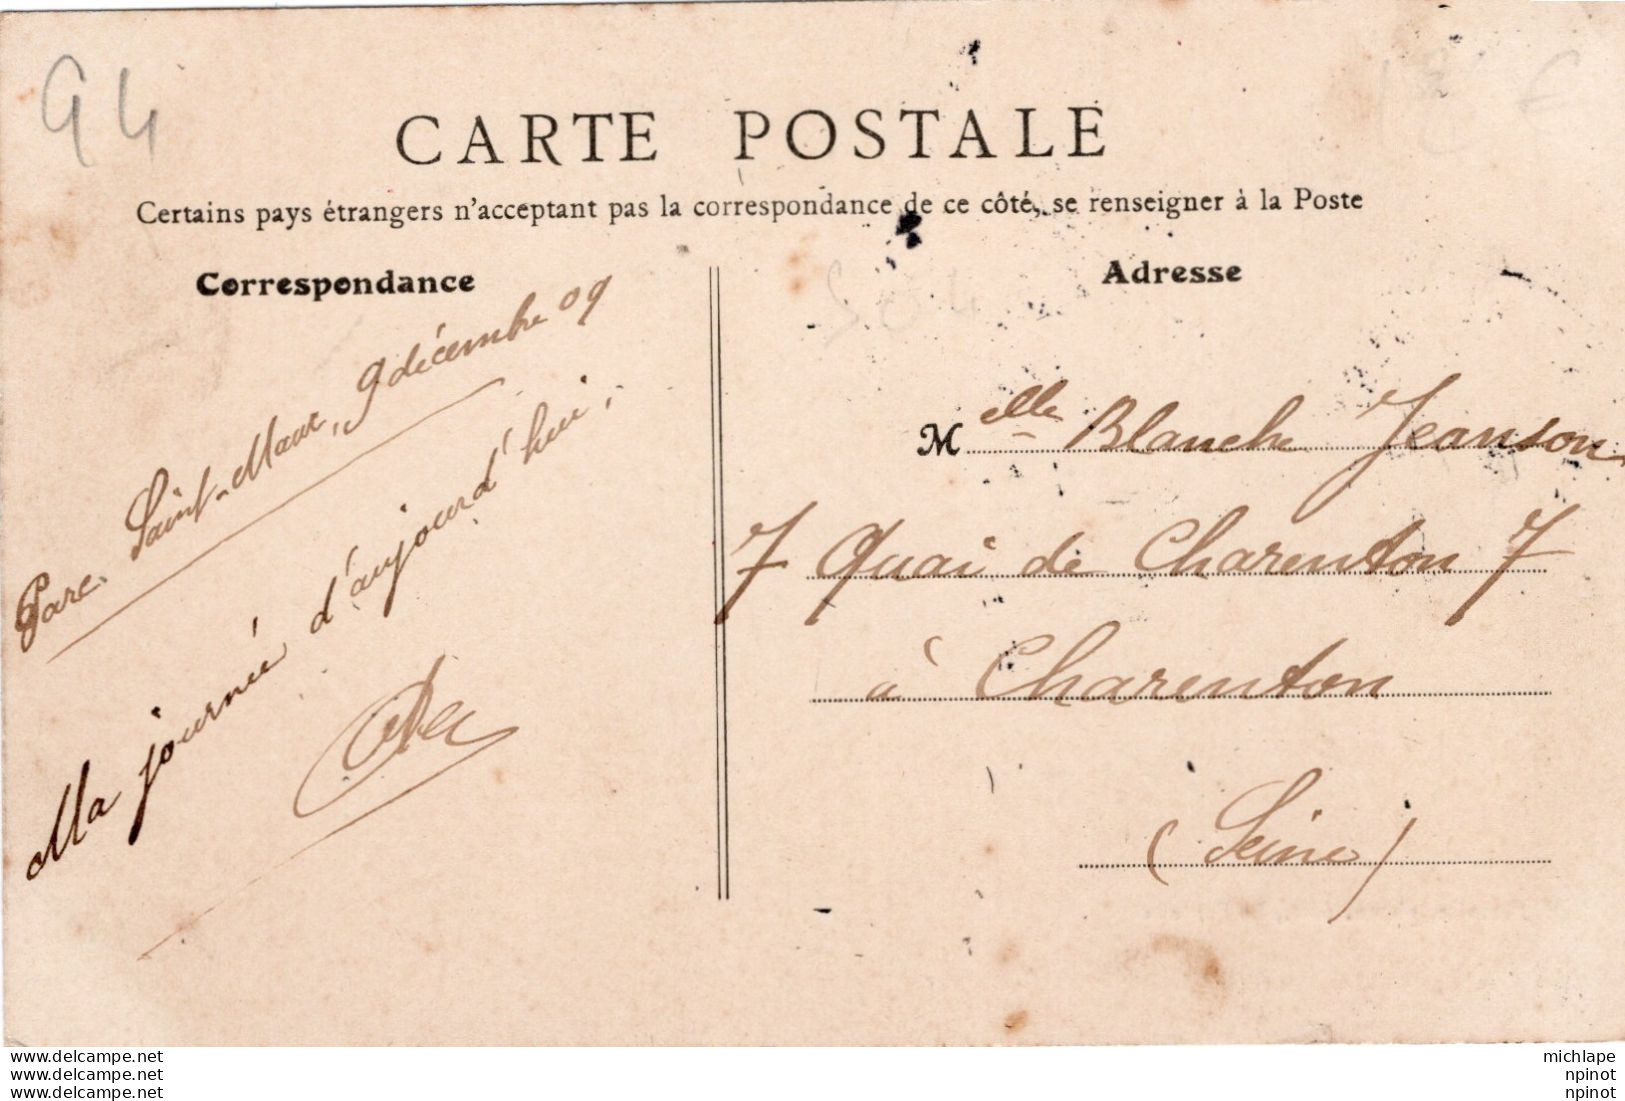 94
CARTE POSTALE
Certains pays étrangers n'acceptant pas la correspondance de ce côté, se renseigner à la Poste
Correspondance
Parc Saint-Maur, 9 décembre 09
Ma journée d'aujourd'hui.
Adresse
Melle Blanche Jeanson
7 Quai de Charenton 7
à Charenton
(Seine)
www.delcampe.net
www.delcampe.net
www.delcampe.net
michlape
npinot
npinot